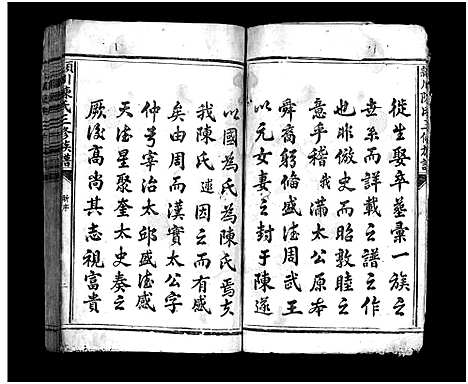 從生娶卒塟彙一族之
世系而詳載之譜之作
也非倣史而昭敦睦之
意乎稽我滿太公原本
舜裔躬脩盛德周武王
以元女妻之封于陳遂
以國為氏為陳氏焉支
我陳氏遞因之而有感
矣由周而漢實太公字
仲弓宰治太邱盛德感
天德星聚奎太史奏之
厥後高尚其志視富貴
潁川陳氏三修族譜
新序